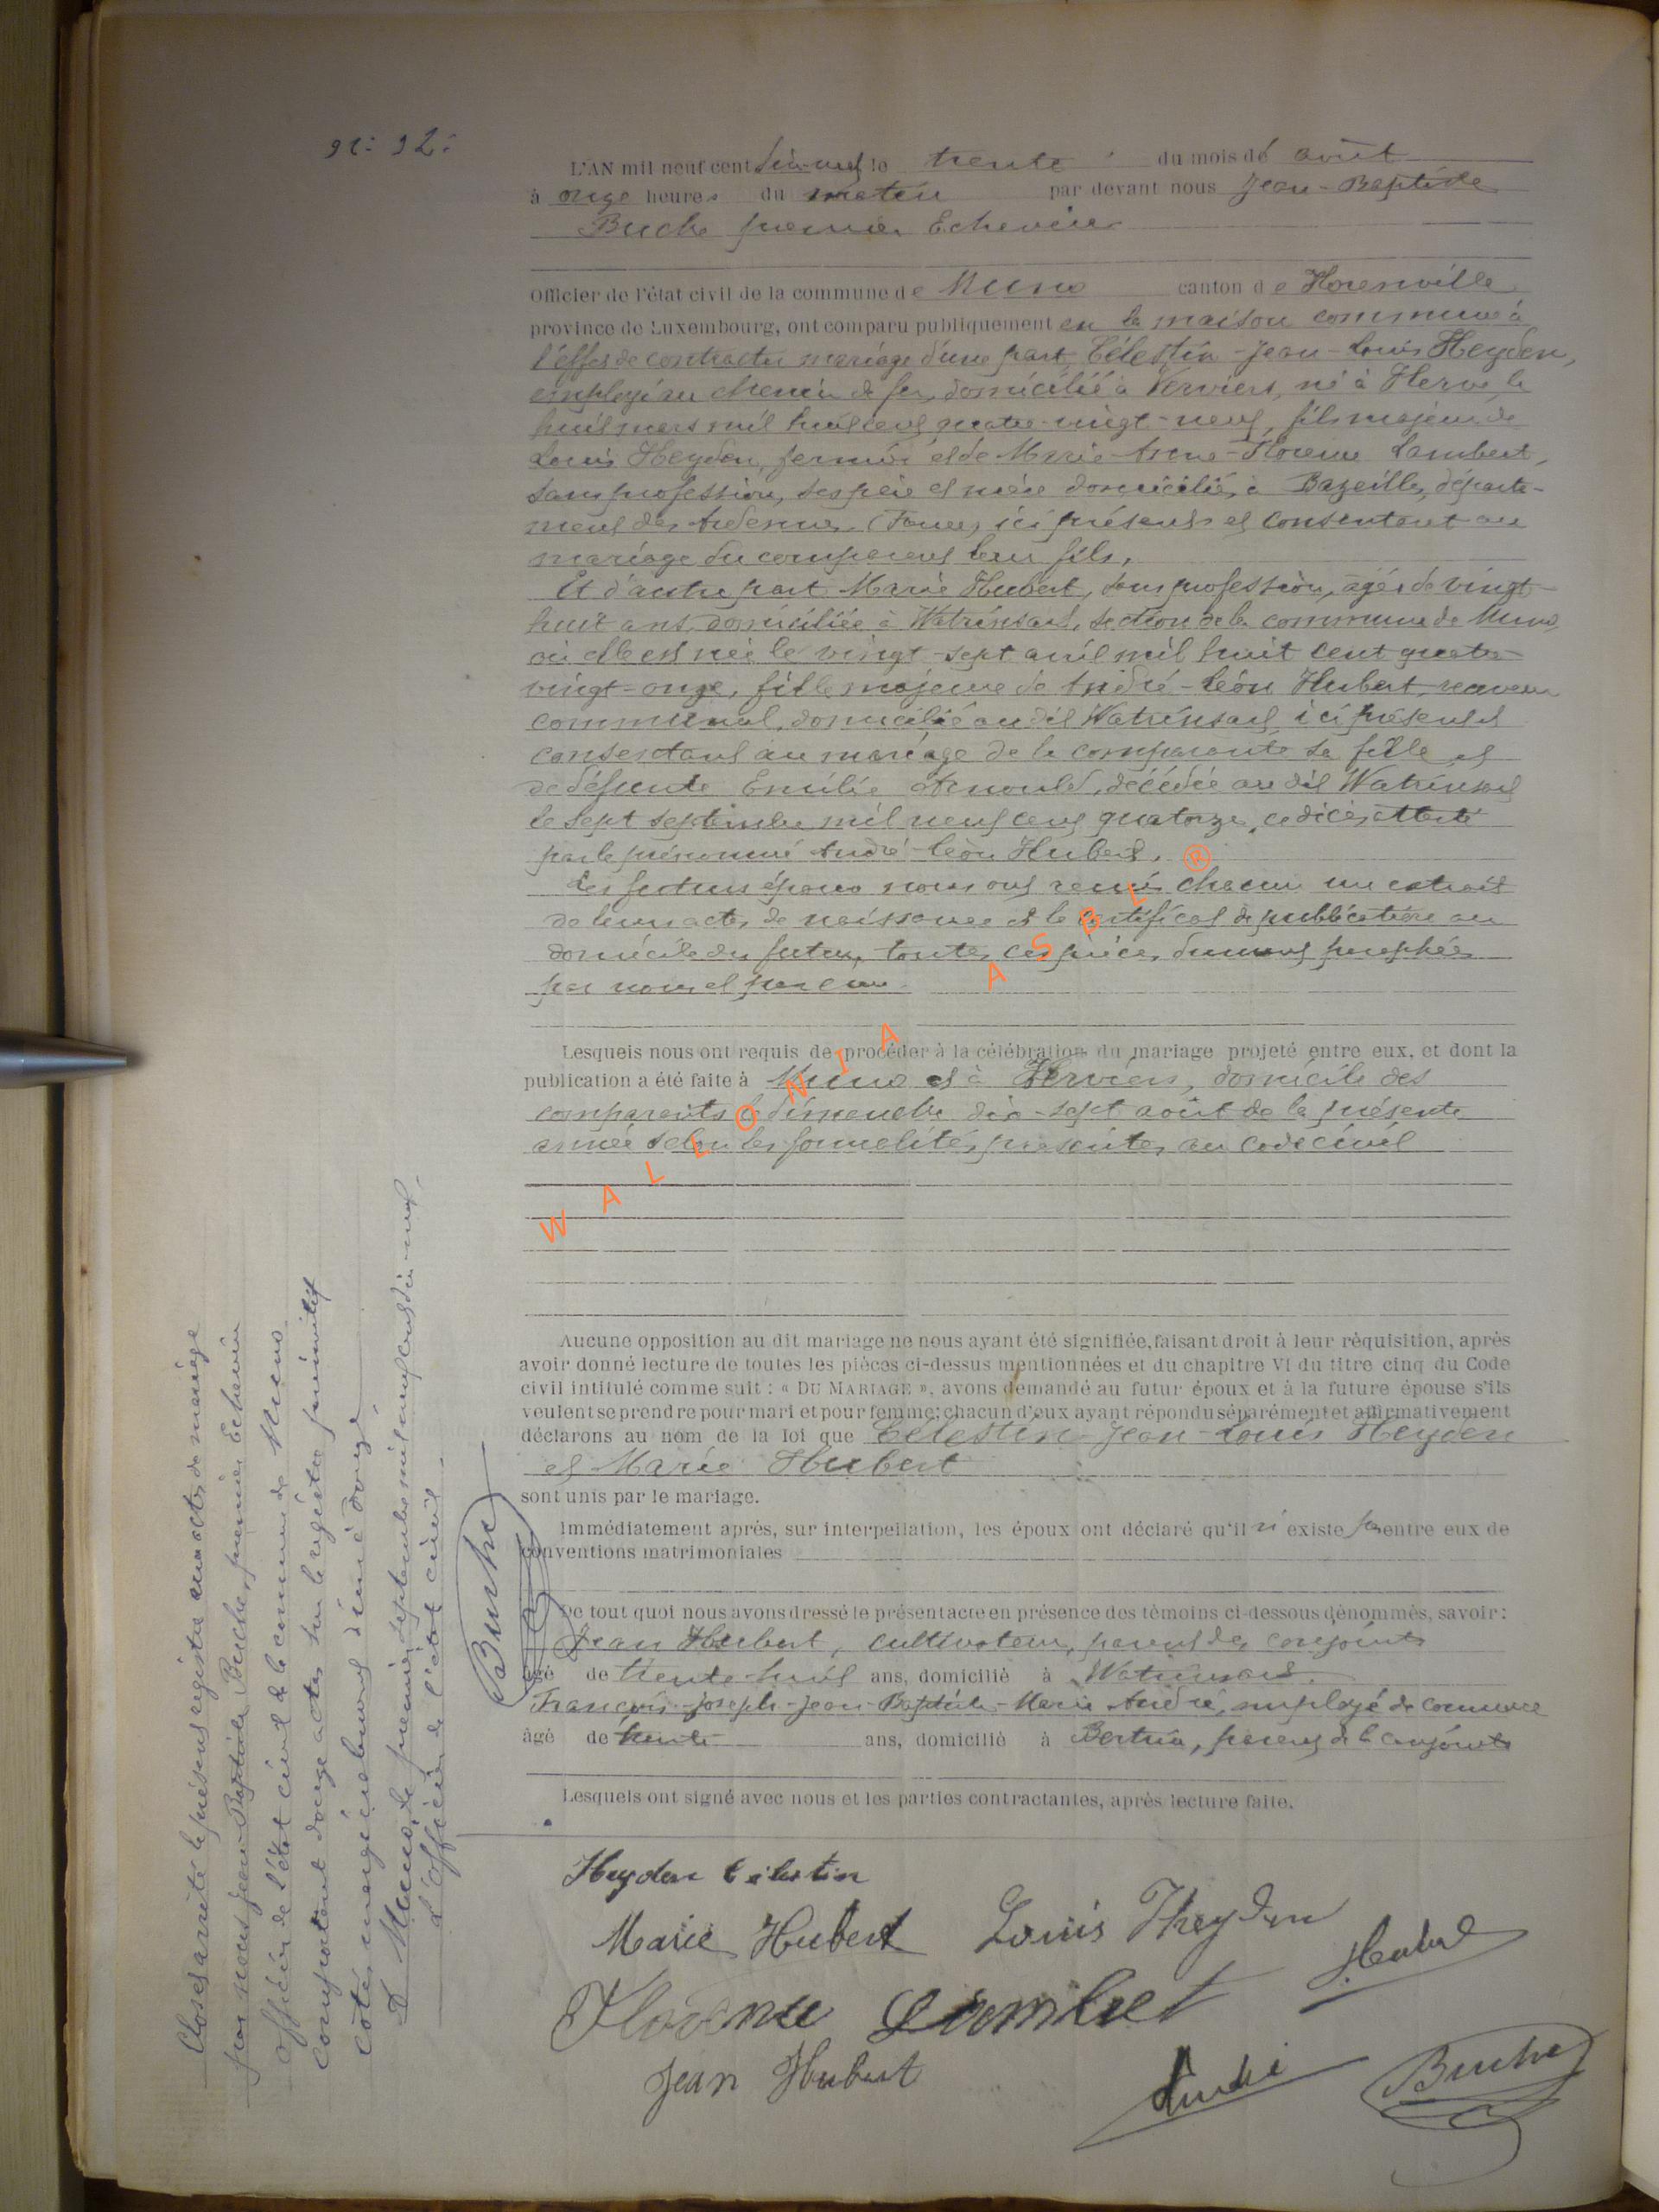 92:
L'AN mil neuf cent dix-neuf le trente du mois de août
à onze heures du matin par devant nous Jean-Baptiste
Buche premier Echevin
Officier de l'état civil de la commune de Muno canton de Florenville
province de Luxembourg, ont comparu publiquement en la maison commune à
l'effet de contracter mariage d'une part, Célestin-Jean-Louis Heyden,
employé au chemin de fer, domicilié à Verviers, né à Herve le
huit mars mil huit cent quatre-vingt-neuf, fils majeur de
Louis Heyden, fermier et de Marie-Anne-Florence Lambert,
sans profession, ses père et mère domiciliés à Bazeilles, départe-
ment des Ardennes (France) ici présents et consentant au
mariage du comparant leur fils,
Et d'autre part Marie Hubert, sans profession, âgée de vingt-
huit ans, domiciliée à Watrinsart, section de la commune de Muno,
où elle est née le vingt-sept avril mil huit cent quatre-
vingt-onze, fille majeure de André-Léon Hubert, receveur
communal, domicilié au dit Watrinsart ici présent et
consentant au mariage de la comparante sa fille et
de défunte Emilie Arnould, décédée au dit Watrinsart
le sept septembre mil neuf cent quatorze, ce décès attesté
par le prénommé André-Léon Hubert.
Les futurs époux nous ont remis chacun un extrait
de leurs actes de naissance et le certificat de publication au
domicile du futur, toutes ces pièces dument paraphées
par nous et par eux.
Lesquels nous ont requis de procéder à la célébration du mariage projeté entre eux, et dont la
publication a été faite à Muno et à Verviers, domicile des
comparants le dimanche dix-sept août de la présente
année selon les formalités prescrites au code civil
Aucune opposition au dit mariage ne nous ayant été signifiée, faisant droit à leur réquisition, après
avoir donné lecture de toutes les pièces ci-dessus mentionnées et du chapitre VI du titre cinq du Code
civil intitulé comme suit : « DU MARIAGE », avons demandé au futur époux et à la future épouse s'ils
veulent se prendre pour mari et pour femme; chacun d'eux ayant répondu séparément et affirmativement
déclarons au nom de la loi que Célestin-Jean-Louis Heyden
et Marie Hubert
sont unis par le mariage.
Immédiatement après, sur interpellation, les époux ont déclaré qu'il n'existe pas entre eux de
conventions matrimoniales
De tout quoi nous avons dressé le présent acte en présence des témoins ci-dessous dénommés, savoir :
Jean Hubert, cultivateur, parent des conjoints
âgé de trente-huit ans, domicilié à Watrinsart.
François-Joseph-Jean-Baptiste-Marie André, employé de commerce
âgé de trente ans, domicilié à Bertrix, parent de la conjointe
Lesquels ont signé avec nous et les parties contractantes, après lecture faite.
Heyden Célestin
Marie Hubert Louis Heyden
Hubert
Florence Lambert
Jean Hubert
André Buche
Clos et arrêté le présent registre aux actes de mariage
par nous Jean-Baptiste Buche, premier Echevin
officier de l'état civil de la commune de Muno
comportant douze actes sur le registre primitif
cotés
A Muno, le premier septembre mil neuf cent dix-neuf.
L'officier de l'état civil.
Buche
WALLONIA ASBL ®